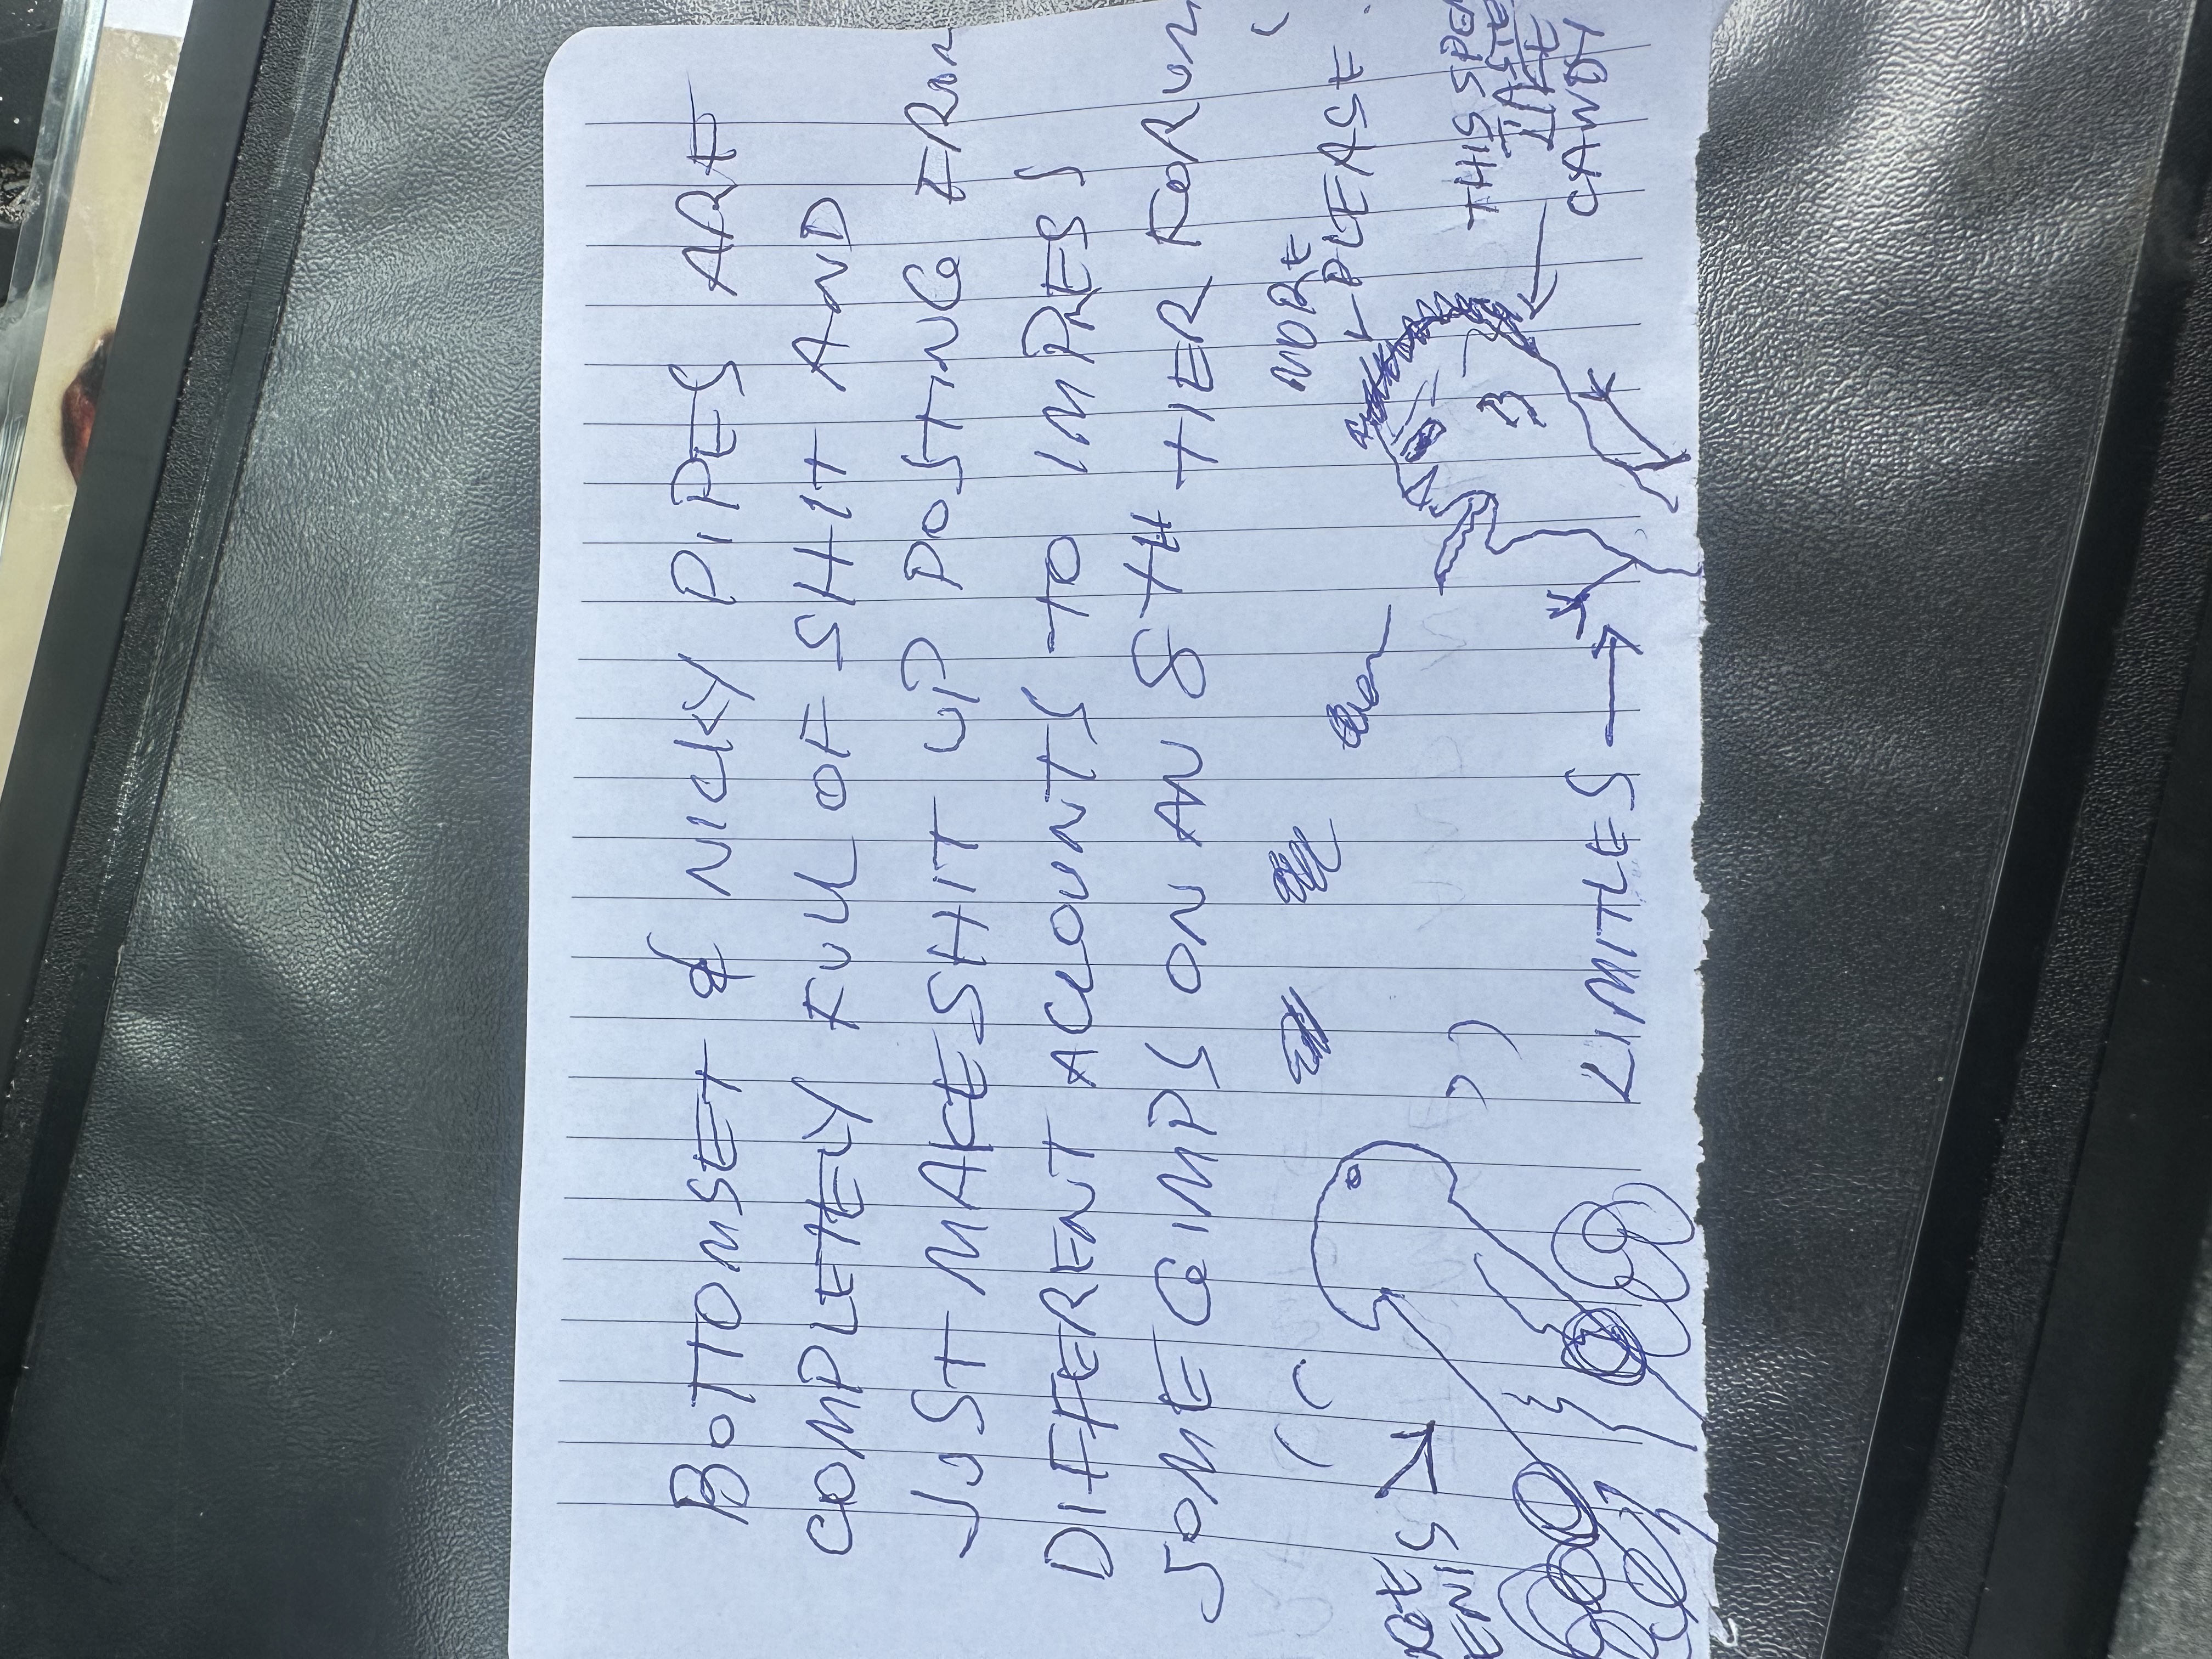 BOTTOMSET & NICKY PIPES ARE
COMPLETELY FULL OF SHIT AND
JUST MAKE SHIT UP POSTING FROM
DIFFERENT ACCOUNTS TO IMPRESS
SOME GIMPS ON AN 8TH TIER FORUM
MORE
PLEASE
ENIS
THIS SPE
TASTE
LIKE
CANDY
LIMITLES